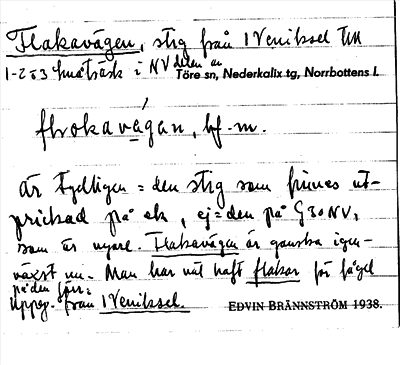 Flakavägen, stig från 1 Veniksel till
1-2 o 3 småträsk i NV delen av
Töre sn, Nederkalix tg, Norrbottens l.
flrokavägan, bf. m.
är tydligen = den stig som finnes ut-
prickad på ek, ej = den på G 30 NV,
som är nyare. Flakavägen är ganska igen-
växt nu. Man har väl haft flakar för fågel
på den förr.
Uppg. från 1 Veniksel.
EDVIN BRÄNNSTRÖM 1938.